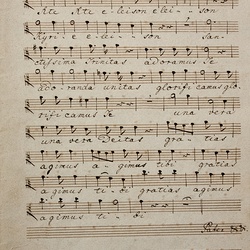 Kyrie eleison elei - son
Kyrie e - lei - son San -
ctissima Trinitas adoramus Te
adoranda unitas glorificamus glo
rificamus Te una vera
una vera Deitas gra - tias
agimus a - gimus tibi gratias
agimus ti - bi gratias agimus
agimus ti - bi